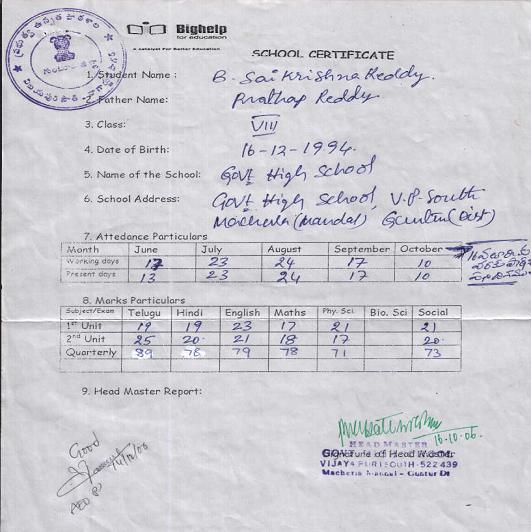 Bighelp
for education
A Catalyst For Better Education
SCHOOL CERTIFICATE
1. Student Name : B. Sai Krishna Reddy.
2. Father Name: Prathap Reddy
3. Class: VIII
4. Date of Birth: 16-12-1994.
5. Name of the School: Govt High School
6. School Address: Govt High School, V.P. South
Macherla (Mandal) Guntur (Dist)
7. Attedance Particulars
Month June July August September October
Working days 17 23 24 17 10
Present days 13 23 24 17 10
8. Marks Particulars
Subject/Exam Telugu Hindi English Maths Phy. Sci Bio. Sci Social
1st Unit 19 19 23 17 21 21
2nd Unit 25 20 21 18 17 20
Quarterly 89 76 79 78 71 73
9. Head Master Report:
Good
10-10-06.
HEAD MASTER
Signature of Head Master
VIJAYAPURI SOUTH-522 439
Macherla Mandal - Guntur Dt